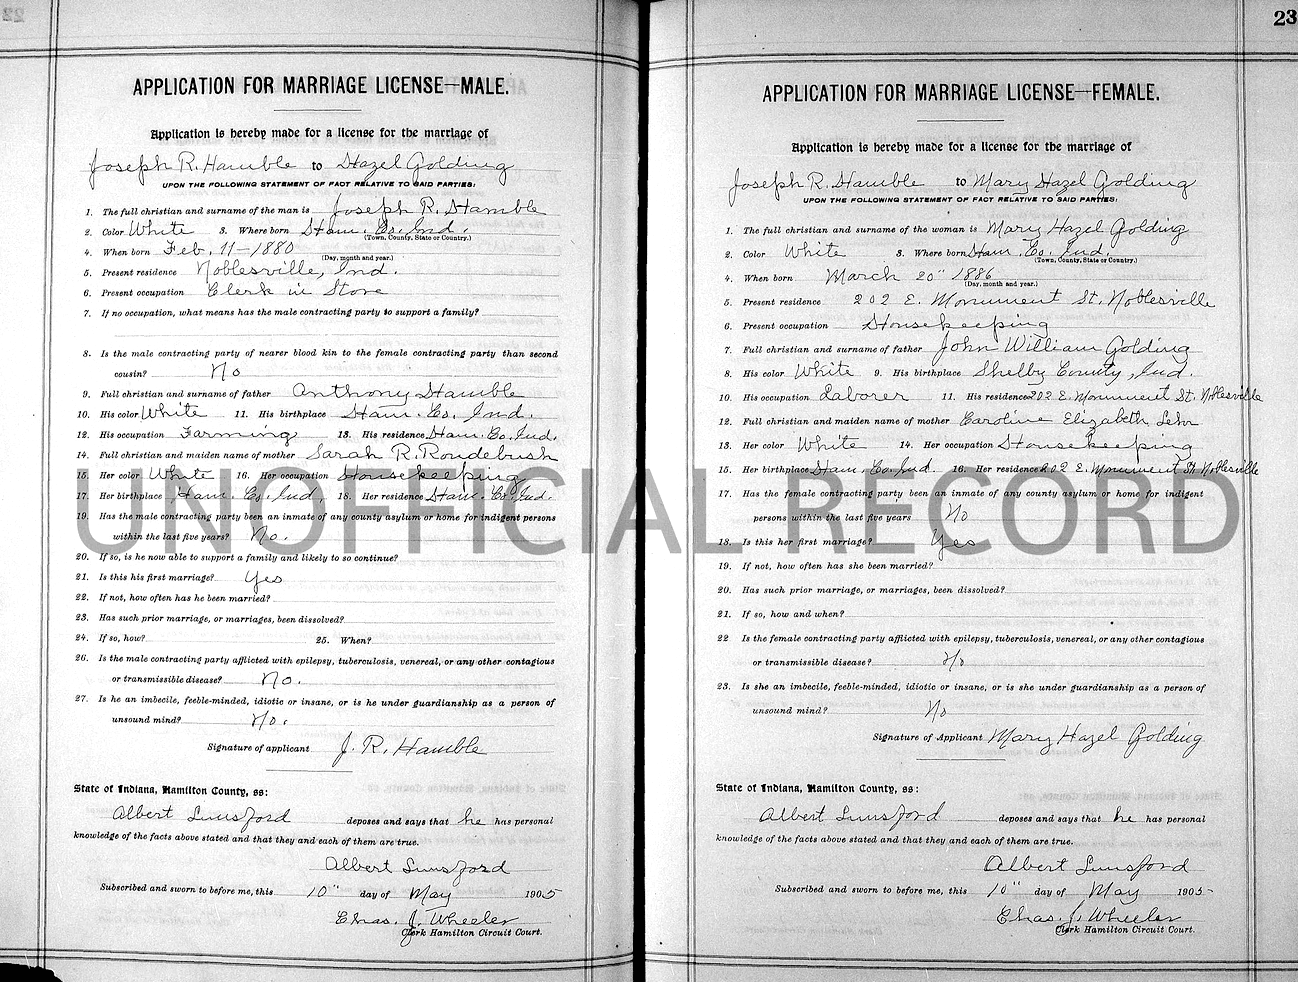 APPLICATION FOR MARRIAGE LICENSE—MALE.
Application is hereby made for a license for the marriage of
Joseph R. Hamble to Hazel Golding
UPON THE FOLLOWING STATEMENT OF FACT RELATIVE TO SAID PARTIES:
1. The full christian and surname of the man is Joseph R. Hamble
2. Color White 3. Where born Ham. Co. Ind.
(Town, County, State or Country.)
4. When born Feb. 11-1880
(Day, month and year.)
5. Present residence Noblesville, Ind.
6. Present occupation Clerk in Store
7. If no occupation, what means has the male contracting party to support a family?
8. Is the male contracting party of nearer blood kin to the female contracting party than second
cousin? No
9. Full christian and surname of father Anthony Hamble
10. His color White 11. His birthplace Ham. Co. Ind.
12. His occupation Farming 13. His residence Ham. Co. Ind.
14. Full christian and maiden name of mother Sarah R. Roudebush
15. Her color White 16. Her occupation Housekeeping
17. Her birthplace Ham. Co. Ind. 18. Her residence Ham. Co. Ind.
19. Has the male contracting party been an inmate of any county asylum or home for indigent persons
within the last five years? No.
20. If so, is he now able to support a family and likely to so continue?
21. Is this his first marriage? Yes
22. If not, how often has he been married?
23. Has such prior marriage, or marriages, been dissolved?
24. If so, how? 25. When?
26. Is the male contracting party afflicted with epilepsy, tuberculosis, venereal, or any other contagious
or transmissible disease? No.
27. Is he an imbecile, feeble-minded, idiotic or insane, or is he under guardianship as a person of
unsound mind? No.
Signature of applicant J. R. Hamble
State of Indiana, Hamilton County, ss:
Albert Lunsford deposes and says that he has personal
knowledge of the facts above stated and that they and each of them are true.
Albert Lunsford
Subscribed and sworn to before me, this 10" day of May 1905
Chas. J. Wheeler
Clerk Hamilton Circuit Court.
23
APPLICATION FOR MARRIAGE LICENSE—FEMALE.
Application is hereby made for a license for the marriage of
Joseph R. Hamble to Mary Hazel Golding
UPON THE FOLLOWING STATEMENT OF FACT RELATIVE TO SAID PARTIES:
1. The full christian and surname of the woman is Mary Hazel Golding
2. Color White 3. Where born Ham. Co. Ind.
(Town, County, State or Country.)
4. When born March 20" 1886
(Day, month and year.)
5. Present residence 202 E. Monument St. Noblesville
6. Present occupation Housekeeping
7. Full christian and surname of father John William Golding
8. His color White 9. His birthplace Shelby County, Ind.
10. His occupation Laborer 11. His residence 202 E. Monument St. Noblesville
12. Full christian and maiden name of mother Caroline Elizabeth Lehr
13. Her color White 14. Her occupation Housekeeping
15. Her birthplace Ham. Co. Ind. 16. Her residence 202 E. Monument St. Noblesville
17. Has the female contracting party been an inmate of any county asylum or home for indigent
persons within the last five years No
18. Is this her first marriage? Yes
19. If not, how often has she been married?
20. Has such prior marriage, or marriages, been dissolved?
21. If so, how and when?
22 Is the female contracting party afflicted with epilepsy, tuberculosis, venereal, or any other contagious
or transmissible disease? No
23. Is she an imbecile, feeble-minded, idiotic or insane, or is she under guardianship as a person of
unsound mind? No
Signature of Applicant Mary Hazel Golding
State of Indiana, Hamilton County, ss:
Albert Lunsford deposes and says that he has personal
knowledge of the facts above stated and that they and each of them are true.
Albert Lunsford
Subscribed and sworn to before me, this 10" day of May 1905
Chas. J. Wheeler
Clerk Hamilton Circuit Court.
UNOFFICIAL RECORD